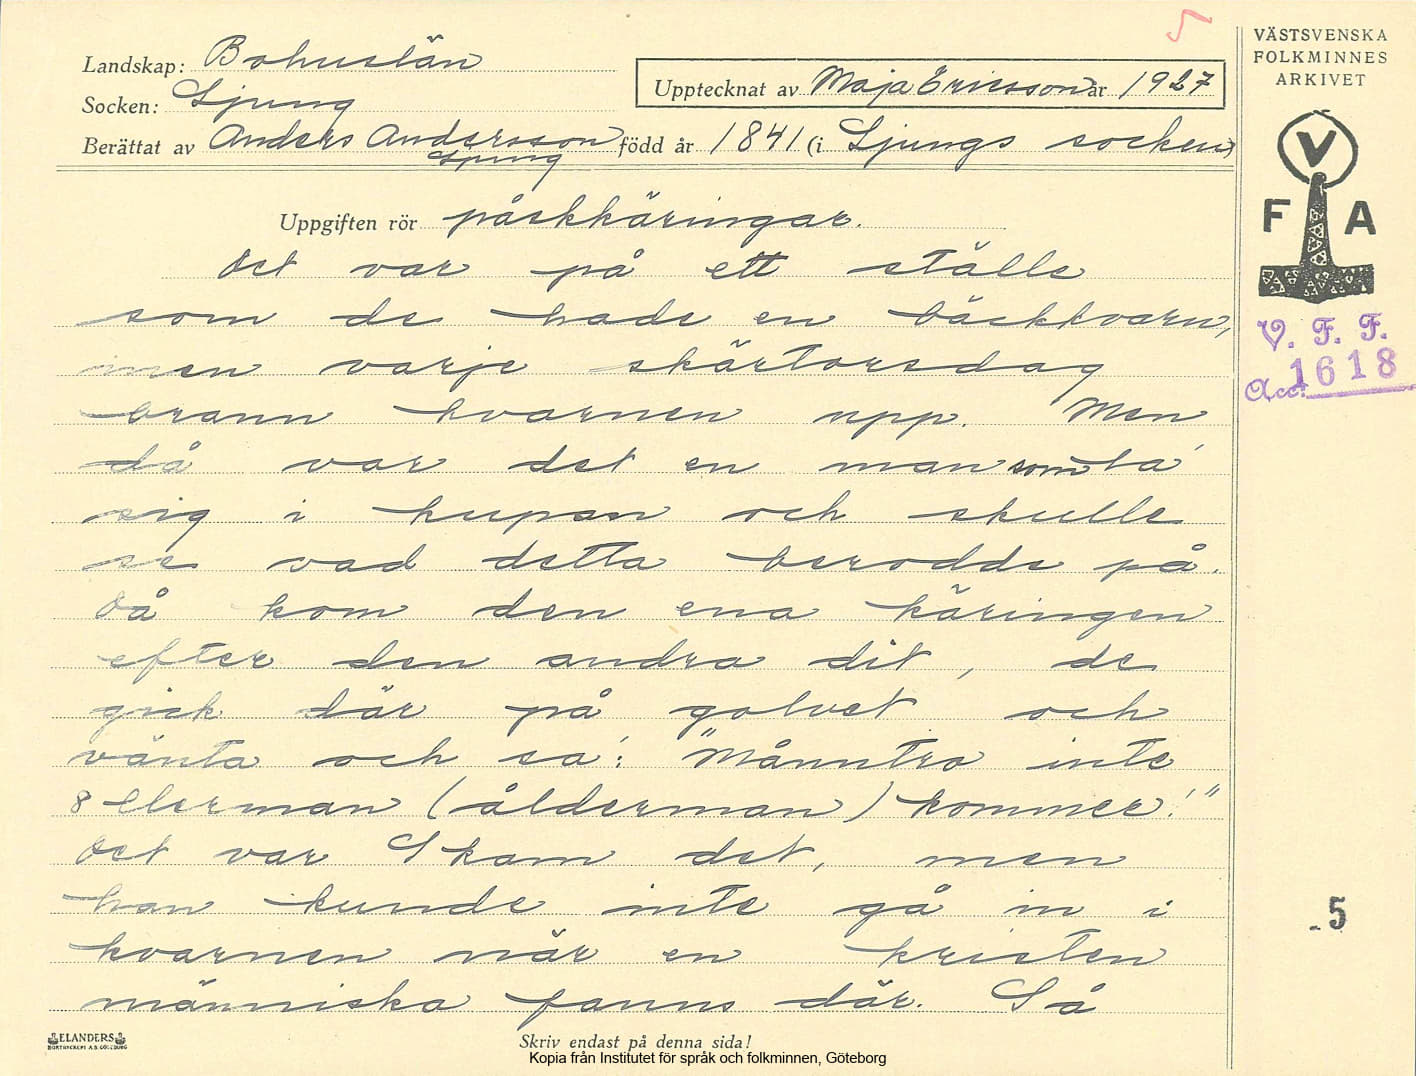 5
Landskap: Bohuslän
Socken: Ljung
Upptecknat av Maja Ericsson år 1927
Berättat av Anders Andersson född år 1841 (i Ljungs socken)
Ljung
Uppgiften rör påskkäringar.
Det var på ett ställe
som de hade en bäckkvarn,
men varje skärtorsdag
brann kvarnen upp. Men
då var det en man som la'
sig i kupan och skulle
se vad detta berodde på.
Då kom den ena käringen
efter den andra dit, de
gick där på golvet och
vänta och sa: "Månntro inte
Ollerman (ålderman) kommer!"
Det var Skam det, men
han kunde inte gå in i
kvarnen när en kristen
människa fanns där. Så
ELANDERS
BOKTRYCKERI A.B. GÖTEBORG
Skriv endast på denna sida!
Kopia från Institutet för språk och folkminnen, Göteborg
VÄSTSVENSKA
FOLKMINNES
ARKIVET
V
F A
V. F. F.
Acc. 1618
5